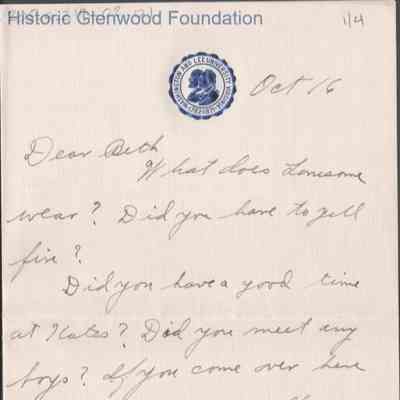 Historic Glenwood Foundation
1/4
WASHINGTON AND LEE UNIVERSITY
Oct 16
Dear Beth
What does Lonesome
wear? Did you have to yell
fire?
Did you have a good time
at Kates? Did you meet any
boys? If you come over here